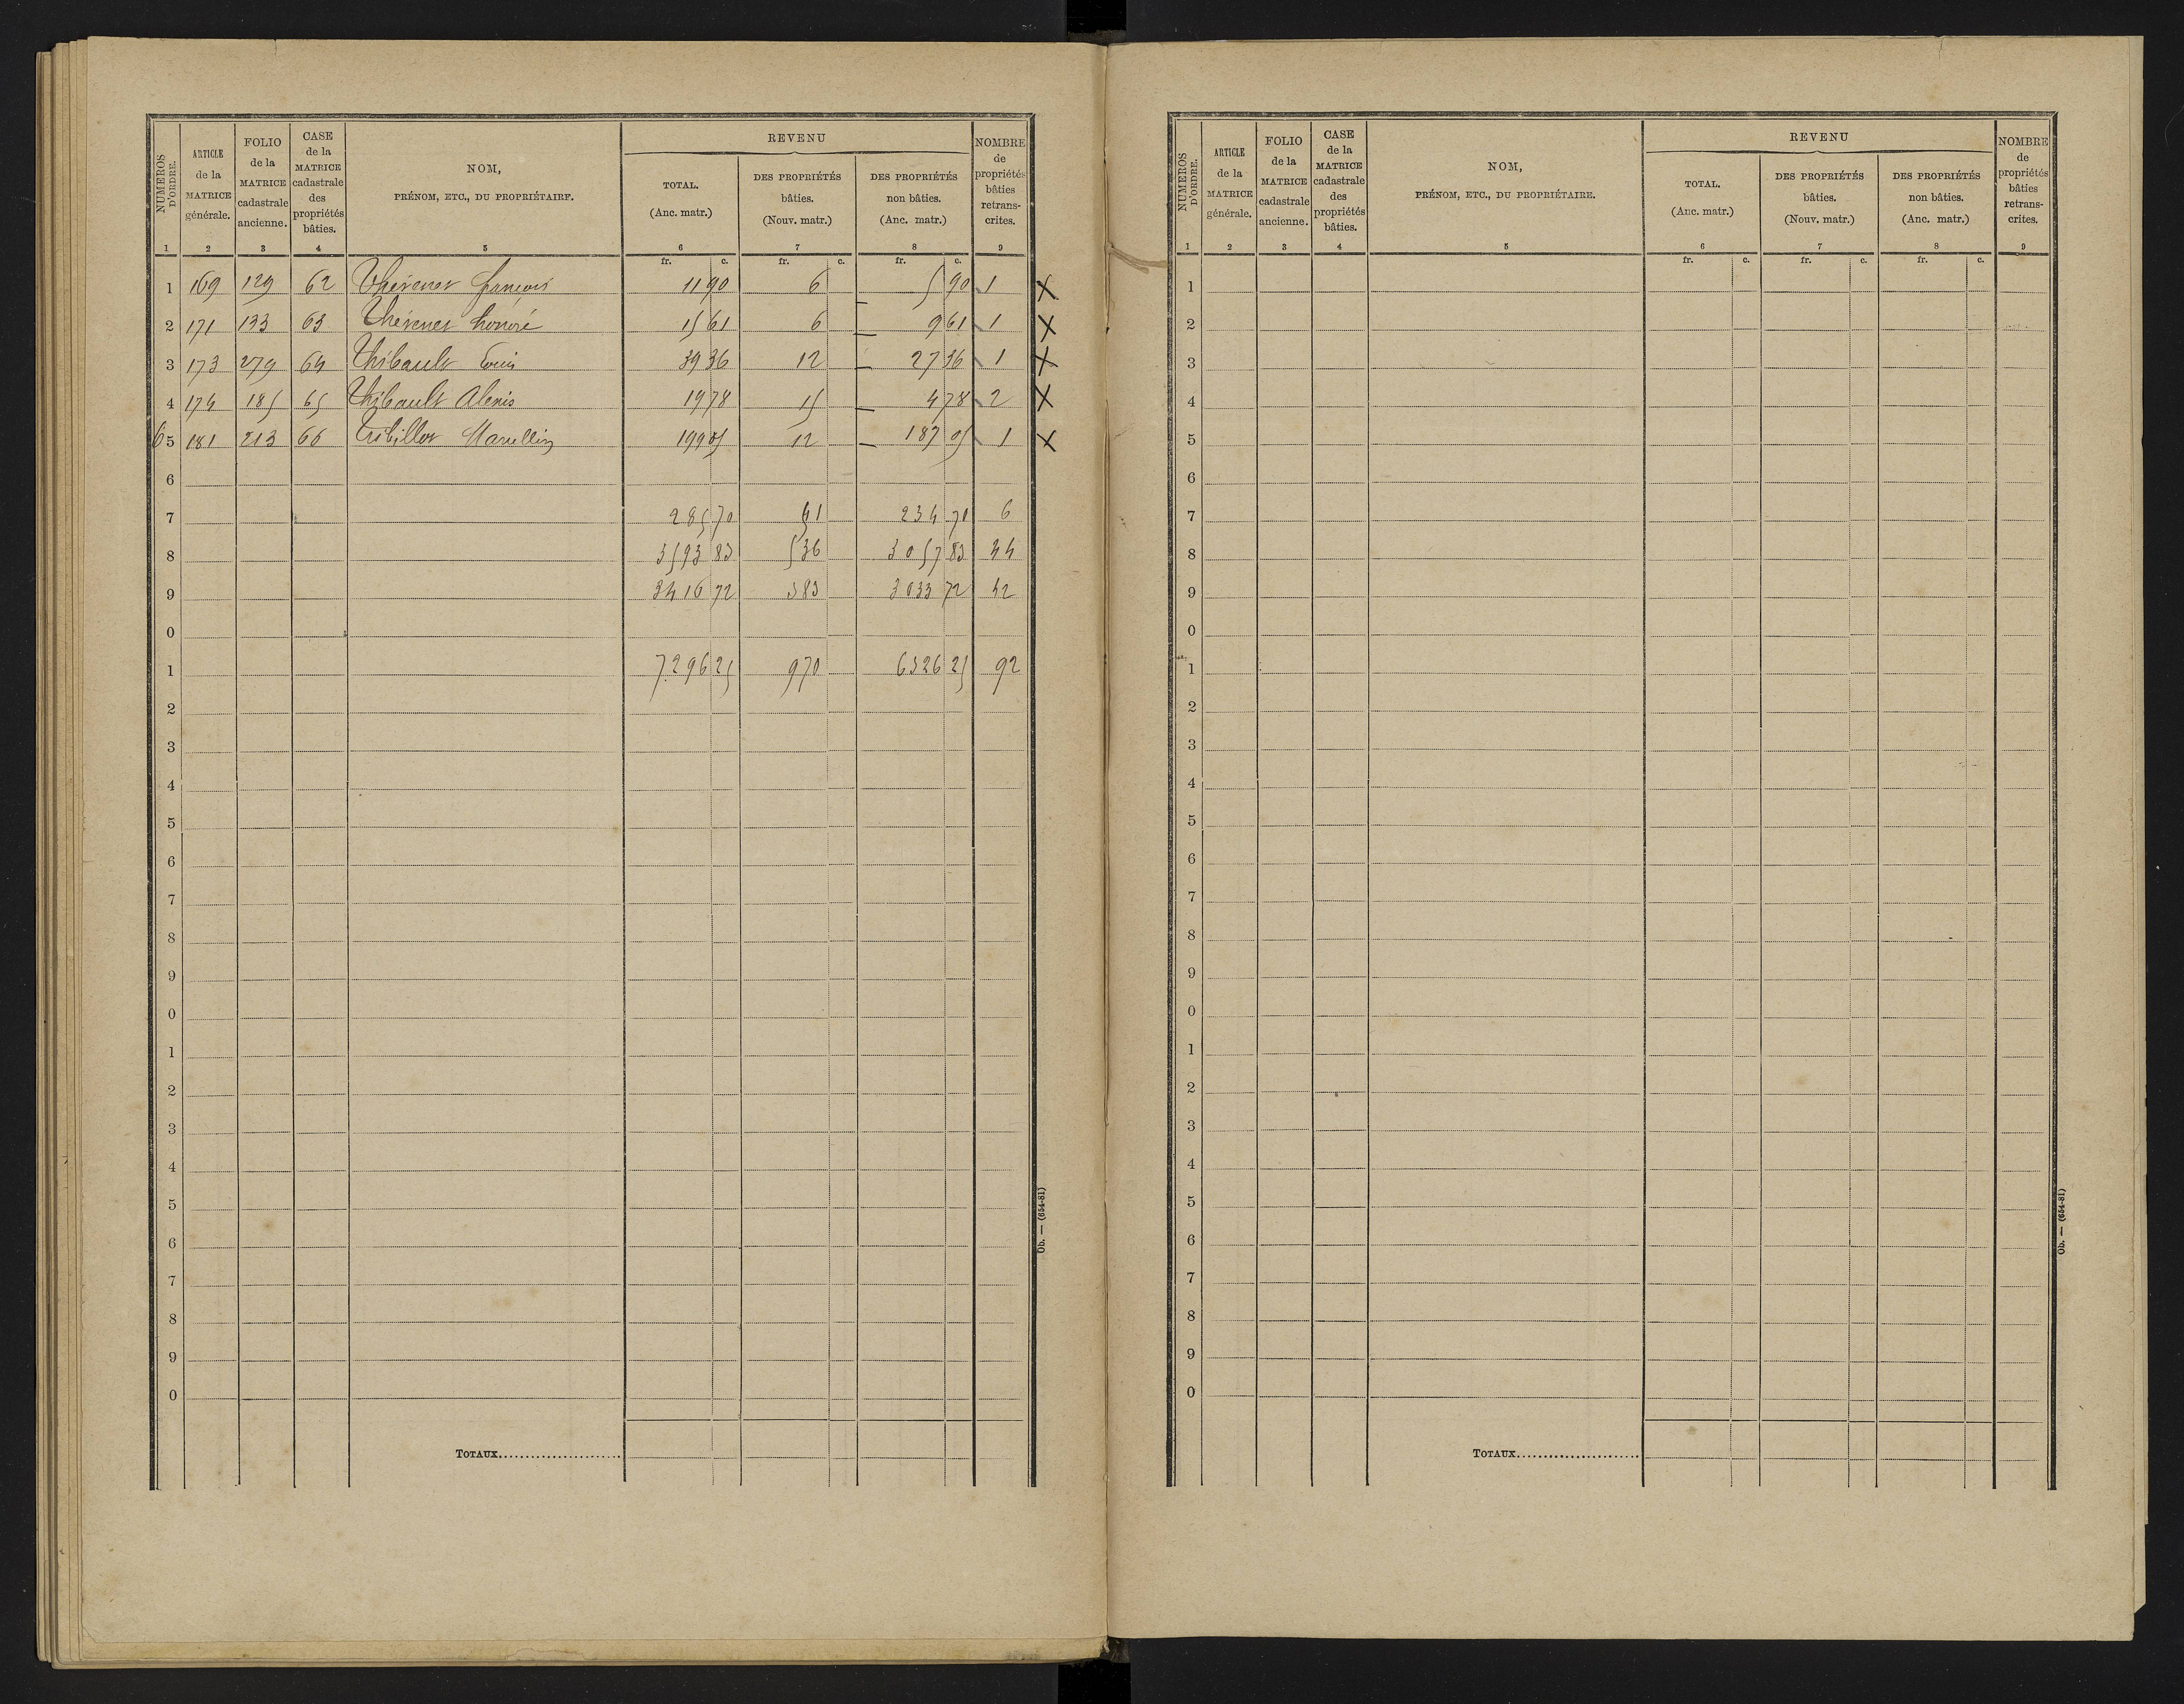 NUMÉROS D'ORDRE. | ARTICLE de la MATRICE générale. | FOLIO de la MATRICE cadastrale ancienne. | CASE de la MATRICE cadastrale des propriétés bâties. | NOM, PRÉNOM, ETC., DU PROPRIÉTAIRE. | REVENU | NOMBRE de propriétés bâties retranscrites.
TOTAL. (Anc. matr.) | DES PROPRIÉTÉS bâties. (Nouv. matr.) | DES PROPRIÉTÉS non bâties. (Anc. matr.)
1 2 3 4 5 6 7 8 9
fr. c. fr. c. fr. c.
1 169 129 62 Thévenet françois 11 90 6 5 90 1 X
2 171 133 63 Thévenet honoré 15 61 6 9 61 1 X
3 173 279 64 Thibault Louis 39 36 12 27 36 1 X
4 174 185 65 Thibault Alexis 19 78 15 4 78 2 X
65 181 213 66 Tribillot Marcellin 199 05 12 187 05 1 X
6
7 285 70 51 234 70 6
8 3593 83 536 3057 83 44
9 3416 72 383 3033 72 42
0
1 7296 25 970 6326 25 92
2
3
4
5
6
7
8
9
0
1
2
3
4
5
6
7
8
9
0
TOTAUX
Ob. — (654-81)
NUMÉROS D'ORDRE. | ARTICLE de la MATRICE générale. | FOLIO de la MATRICE cadastrale ancienne. | CASE de la MATRICE cadastrale des propriétés bâties. | NOM, PRÉNOM, ETC., DU PROPRIÉTAIRE. | REVENU | NOMBRE de propriétés bâties retranscrites.
TOTAL. (Anc. matr.) | DES PROPRIÉTÉS bâties. (Nouv. matr.) | DES PROPRIÉTÉS non bâties. (Anc. matr.)
1 2 3 4 5 6 7 8 9
fr. c. fr. c. fr. c.
1
2
3
4
5
6
7
8
9
0
1
2
3
4
5
6
7
8
9
0
1
2
3
4
5
6
7
8
9
0
TOTAUX
Ob. — (654-81)